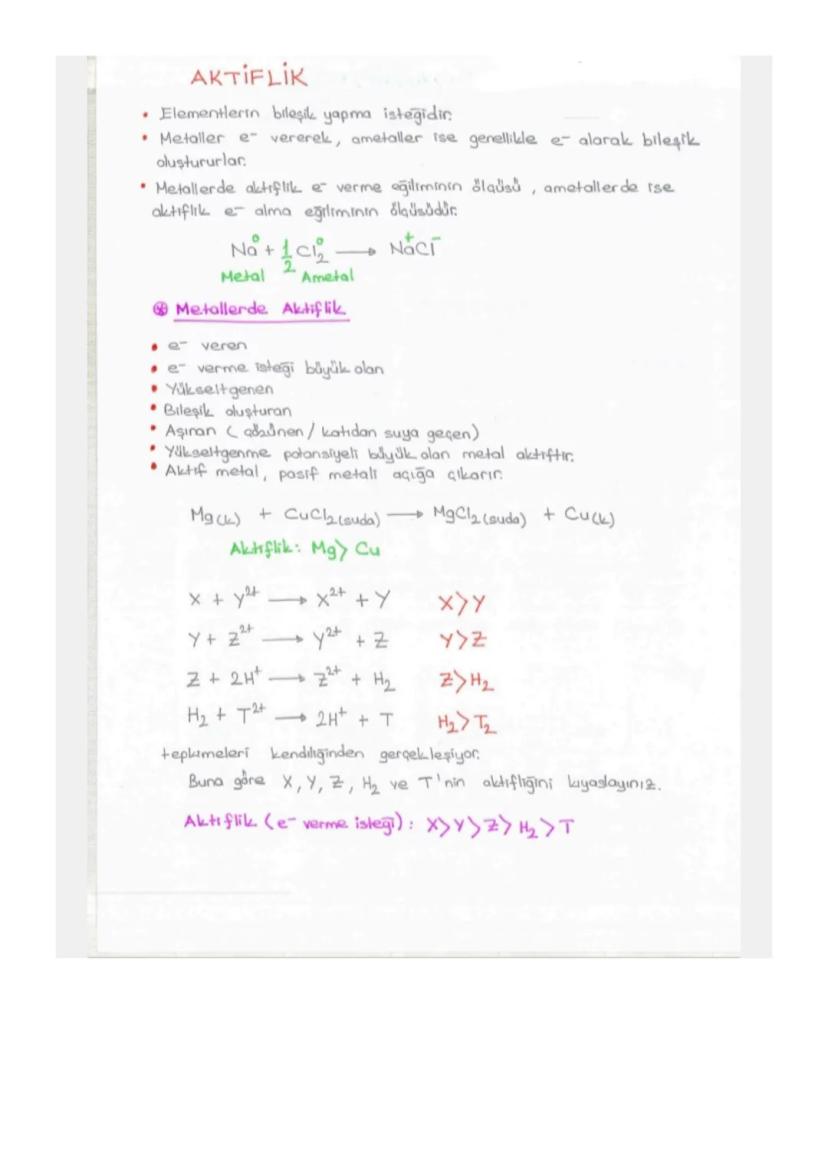 AKTİFLİK
• Elementlerin bileşik yapma isteğidir.
• Metaller e⁻ vererek, ametaller ise genellikle e⁻ alarak bileşik
oluştururlar.
• Metallerde aktiflik e⁻ verme eğiliminin ölçüsü, ametallerde ise
aktiflik e⁻ alma eğiliminin ölçüsüdür.
Na⁰ + 1/2 Cl₂⁰ → Na⁺Cl⁻
Metal Ametal
⊛ Metallerde Aktiflik
• e⁻ veren
• e⁻ verme isteği büyük olan
• Yükseltgenen
• Bileşik oluşturan
• Aşınan (çözünen / katıdan suya geçen)
• Yükseltgenme potansiyeli büyük olan metal aktiftir.
• Aktif metal, pasif metali açığa çıkarır.
Mg(k) + CuCl₂(suda) → MgCl₂(suda) + Cu(k)
Aktiflik: Mg > Cu
X + Y²⁺ → X²⁺ + Y X>Y
Y + Z²⁺ → Y²⁺ + Z Y>Z
Z + 2H⁺ → Z²⁺ + H₂ Z>H₂
H₂ + T²⁺ → 2H⁺ + T H₂>T₂
tepkimeleri kendiliğinden gerçekleşiyor.
Buna göre X, Y, Z, H₂ ve T'nin aktifliğini kıyaslayınız.
Aktiflik (e⁻ verme isteği): X>Y>Z>H₂>T